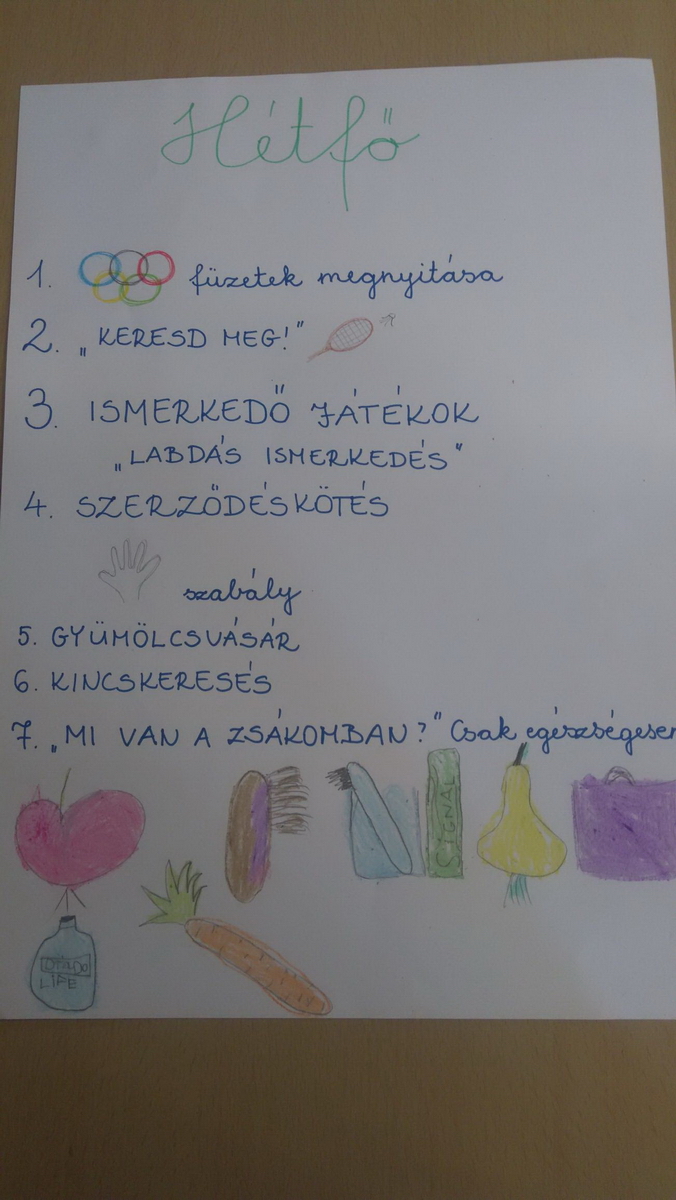 Hétfő
1. füzetek megnyitása
2. „KERESD MEG!"
3. ISMERKEDŐ JÁTÉKOK
„LABDÁS ISMERKEDÉS"
4. SZERZŐDÉSKÖTÉS
szabály
5. GYÜMÖLCSVÁSÁR
6. KINCSKERESÉS
7. „MI VAN A ZSÁKOMBAN?" Csak egészségesen
SIGNAL
LIFE